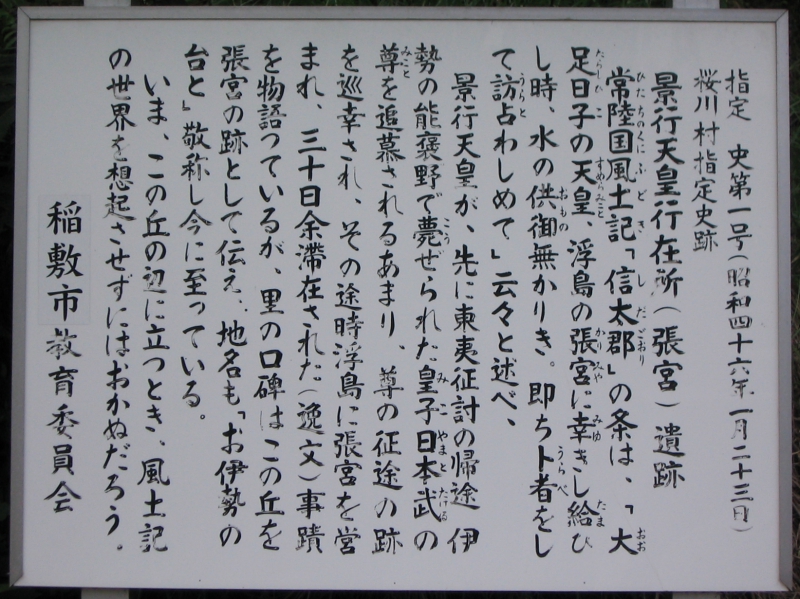 指定　史第一号（昭和四十六年一月二十三日）
桜川村指定史跡
景行天皇行在所（張宮）遺跡
常陸国風土記「信太郡」の条は、「大
足日子の天皇、浮島の張宮に幸きし給ひ
し時、水の供御無かりき。即ち卜者をし
て訪占わしめて」云々と述べ、
景行天皇が、先に東夷征討の帰途　伊
勢の能褒野で薨ぜられた皇子日本武の
尊を追慕されるあまり、尊の征途の跡
を巡幸され、その途時浮島に張宮を営
まれ、三十日余滞在された（逸文）事蹟
を物語っているが、里の口碑はこの丘を
張宮の跡として伝え、地名も「お伊勢の
台と」敬称し今に至っている。
いま、この丘の辺に立つとき、風土記
の世界を想起させずにはおかぬだろう。
稲敷市教育委員会